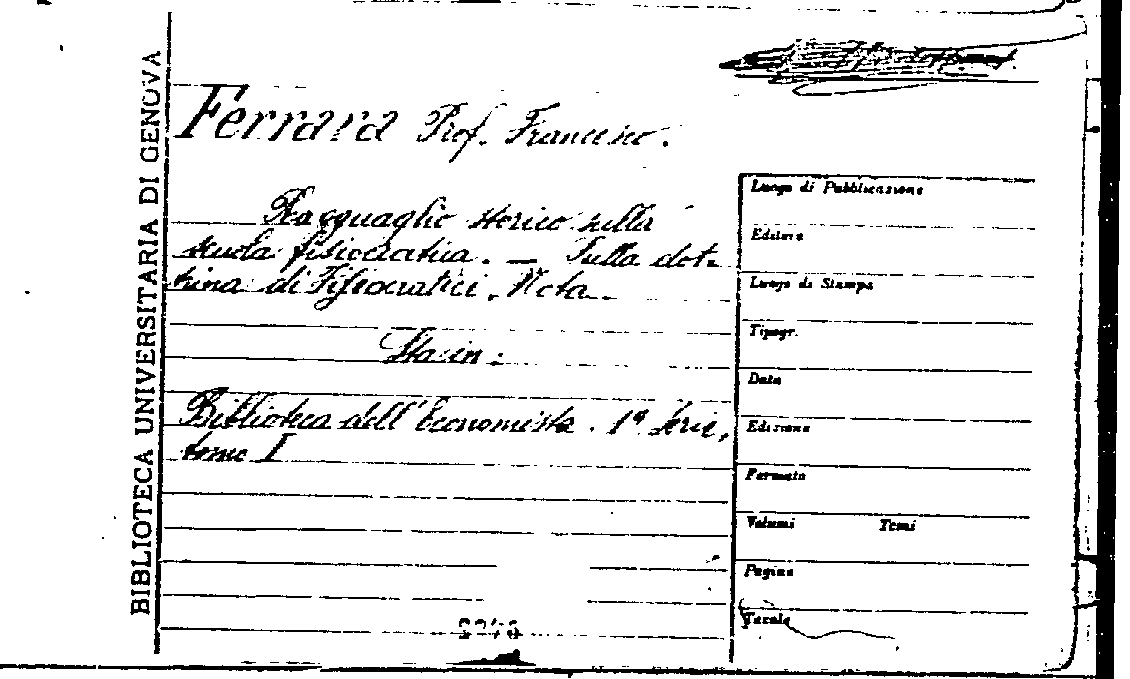 BIBLIOTECA UNIVERSITARIA DI GENOVA
Ferrara Prof. Francesco.
Ragguaglio storico sulla
scuola fisiocratica. — Sulla dot-
trina di Fisiocratici. Nota
Sta in:
Biblioteca dell'Economista. 1ª Serie,
tomo I
Luogo di Pubblicazione
Editore
Luogo di Stampa
Tipogr.
Data
Edizione
Formato
Volumi Tomi
Pagine
Tavole